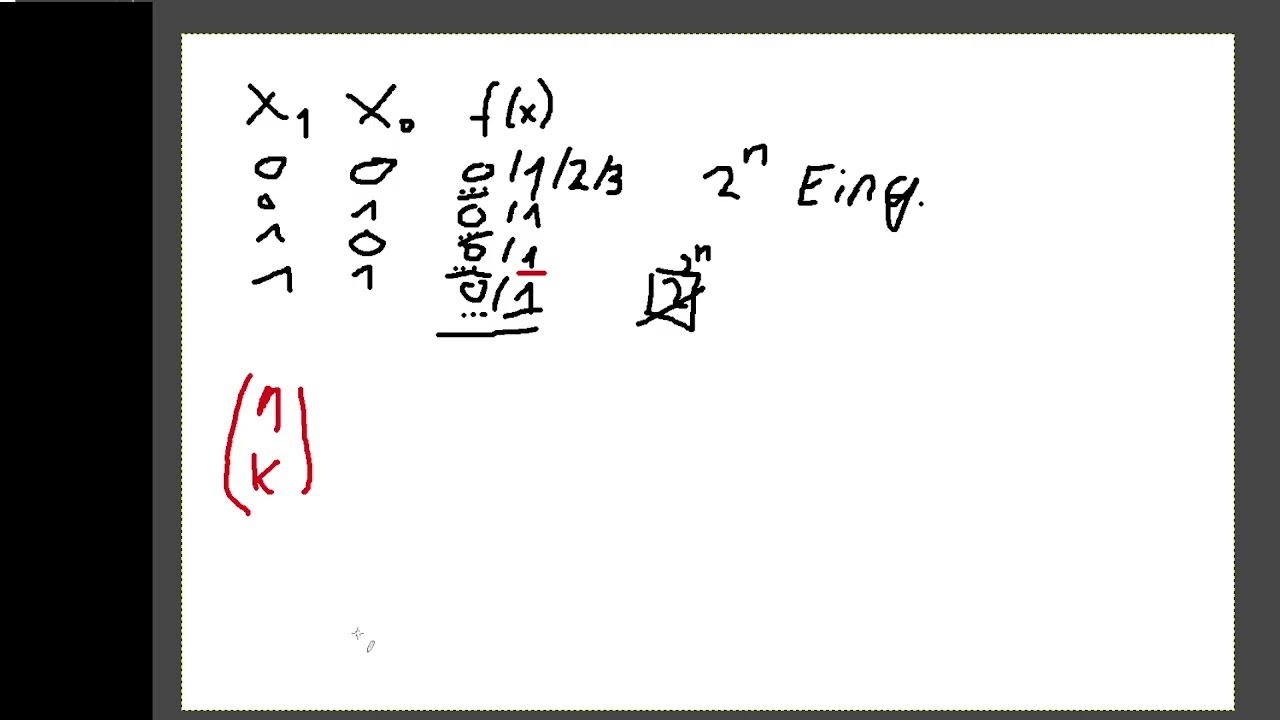 X₁ X₀ f(x)
0 0 0/1/2/3 2ⁿ Eing.
0 1 0/1
1 0 0/1
1 1 0/1 2^2ⁿ
(n
k)